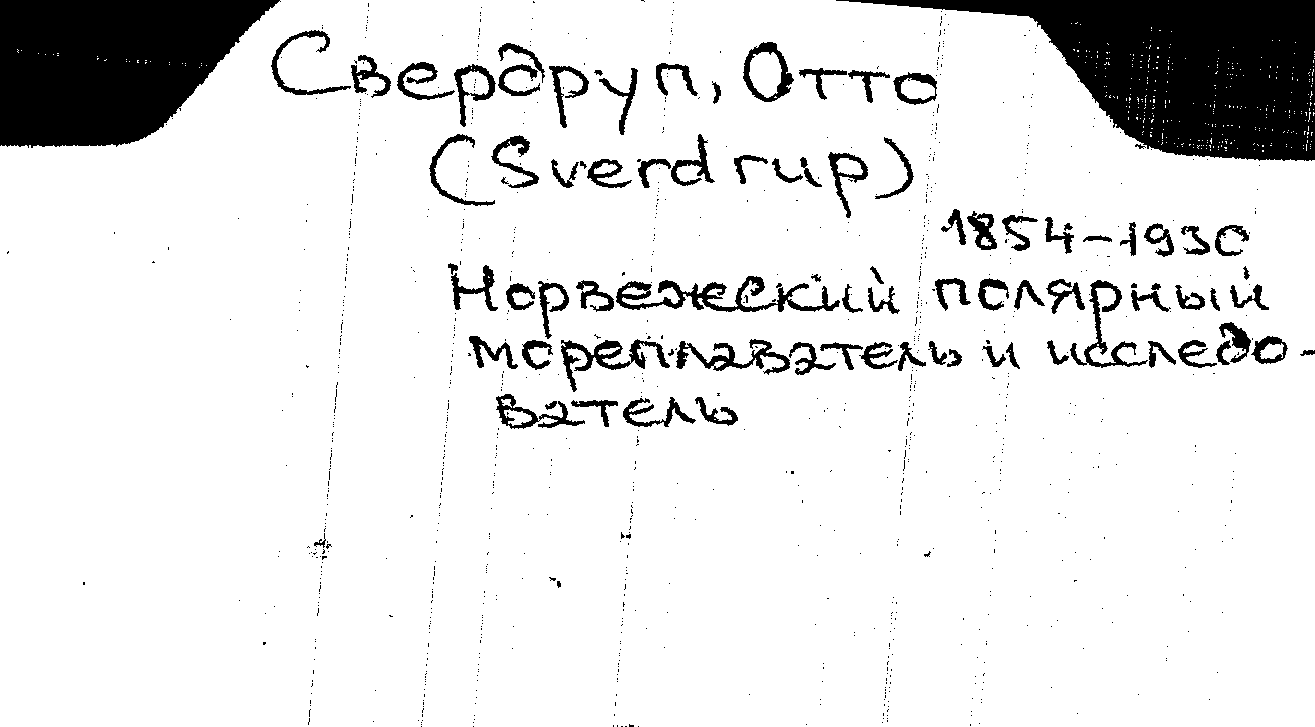 Свердруп, Отто
(Sverdrup)
1854-1930
Норвежский полярный
мореплаватель и исследо-
ватель